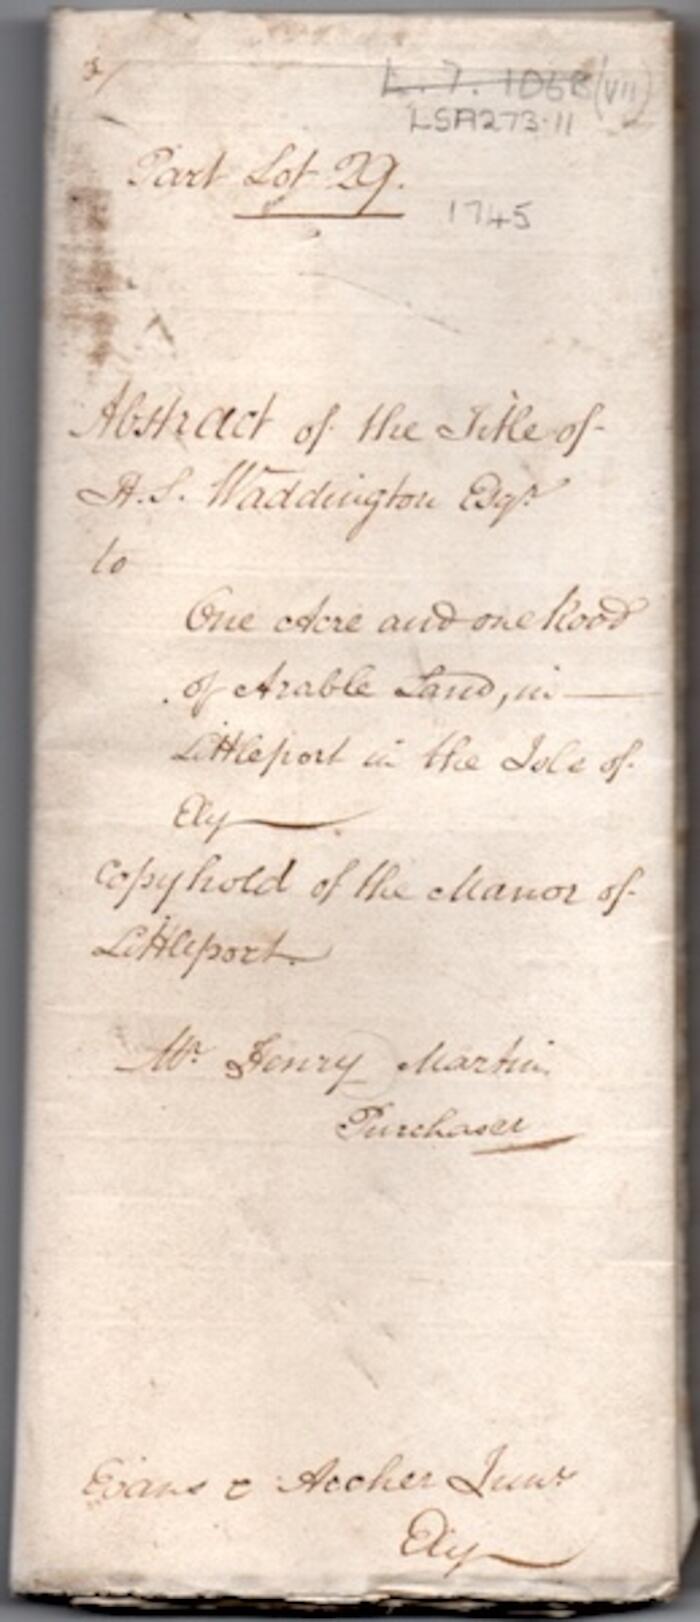 L.7.106B(VII)
LSA273·11
Part Lot 29.
1745
Abstract of the Title of
H.S. Waddington Esqr
to
One Acre and one Rood
of Arable Land, in
Littleport in the Isle of
Ely
Copyhold of the Manor of
Littleport.
Mr Henry Martin
Purchaser
Evans & Archer Junr
Ely